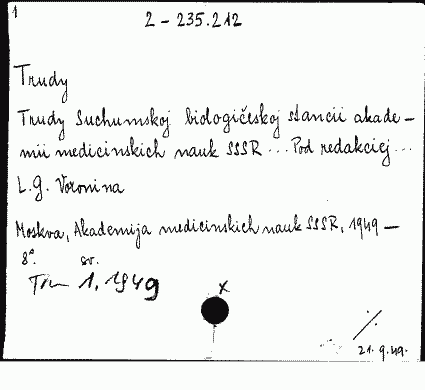 1
2 - 235.212
Trudy
Trudy Suchumskoj biologičeskoj stancii akade-
mii medicinskich nauk SSSR ... Pod redakciej ...
L.G. Voronina
Moskva, Akademija medicinskich nauk SSSR, 1949 -
8°. sv.
1, 1949
x
21.9.49.